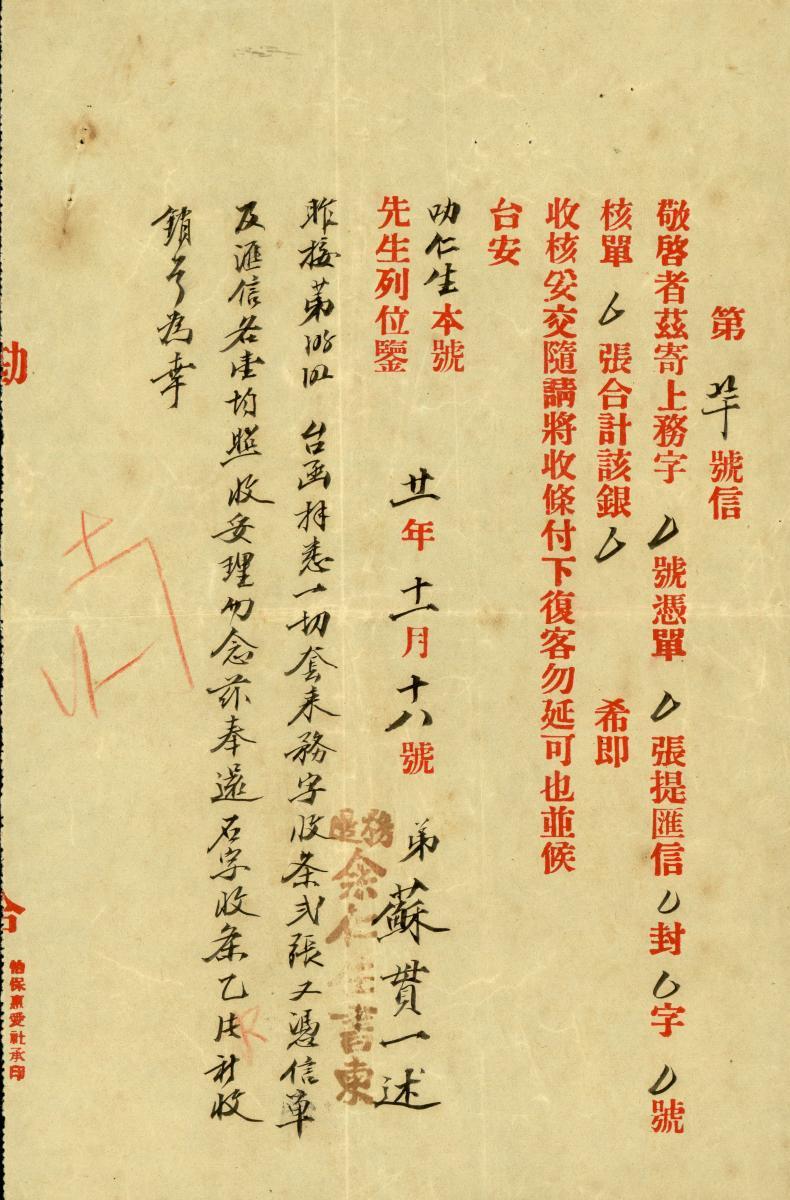 第 卅 號信
敬啓者茲寄上務字 号憑單 張提匯信 封 字 號
核單 張合計該銀 希即
收核妥交隨請將收條付下復客勿延可也並候
台安
叻仁生本號
先生列位鑒
廿一年 十一月 十八號 弟 蘇貫一述
務邑余仁生書柬
昨接第 台函拜悉一切套來務字收条弍張又憑信單
及滙信各壹均照收妥理勿念茲奉還石字收条乙 收
銷号為幸
怡保惠愛社承印